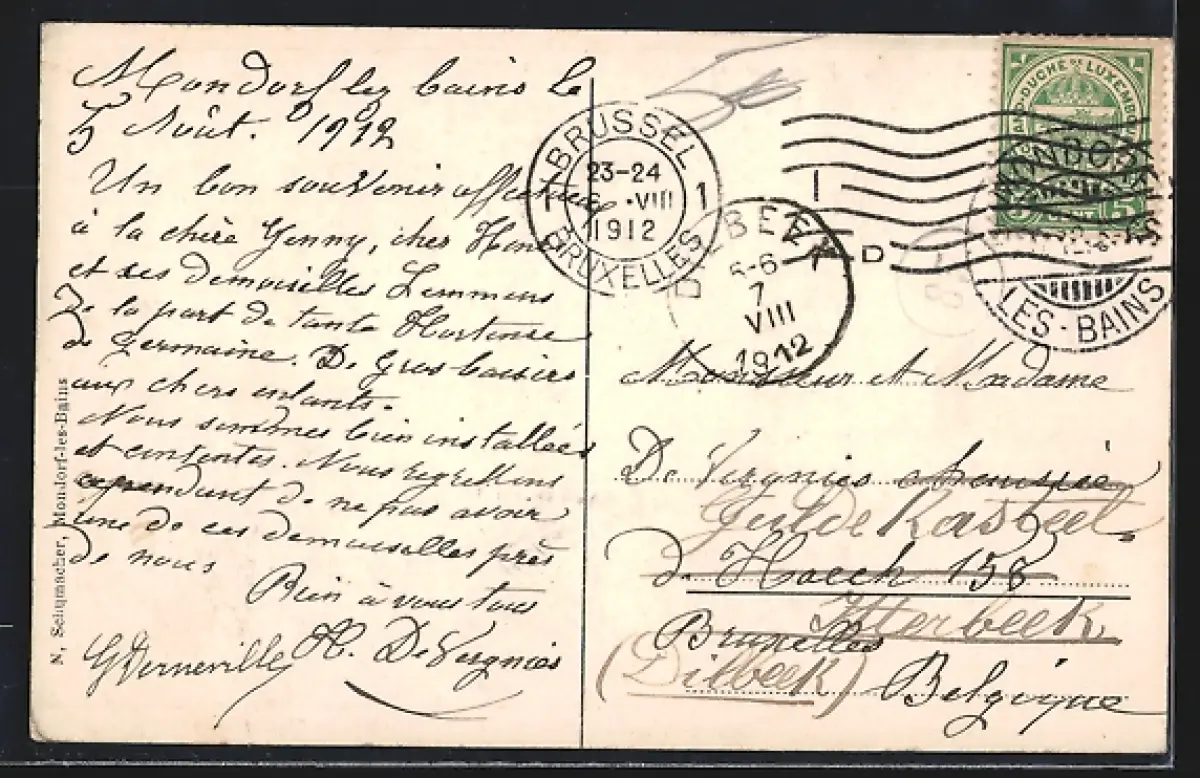 Mondorf les bains le
5 Août. 1912
Un bon souvenir affectueux
à la chère Jenny, cher Henri
et ses demoiselles Lemmens
De la part de tante Hortense
de Germaine. De Gros baisers
aux chers enfants.
Nous sommes bien installées
et contentes. Nous regrettons
cependant de ne pas avoir
une de ces demoiselles près
de nous
Bien à vous tous
H. De Vergnies
G Derneville
N. Schumacher, Mondorf-les-Bains
BRUSSEL
1 1
23-24
6 .VIII
1912
BRUXELLES
DILBEEK
5-6
7
VIII
1912
GRAND-DUCHÉ DE LUXEMBOURG
5 5
MONDORF
LES-BAINS
Monsieur et Madame
De Vergnies
Kasteel
158
Itterbeek
Bruxelles
(Dilbeek)
Belgique